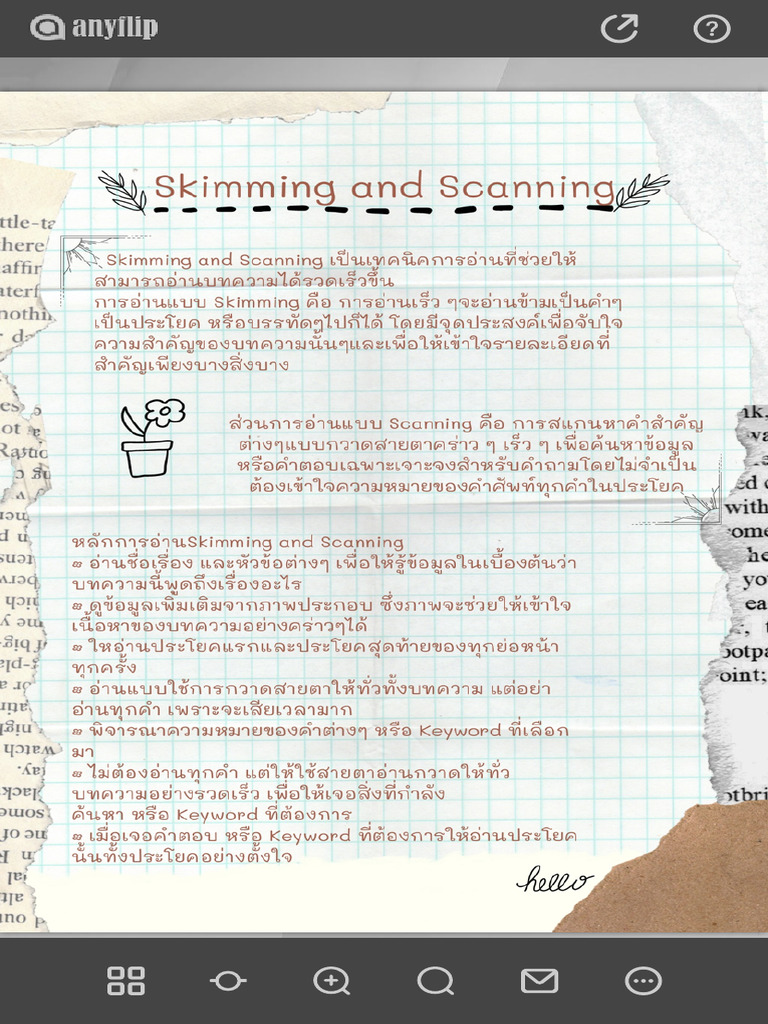 anyflip
Skimming and Scanning
Skimming and Scanning เป็นเทคนิคการอ่านที่ช่วยให้
สามารถอ่านบทความได้รวดเร็วขึ้น
การอ่านแบบ Skimming คือ การอ่านเร็ว ๆจะอ่านข้ามเป็นคำๆ
เป็นประโยค หรือบรรทัดๆไปก็ได้ โดยมีจุดประสงค์เพื่อจับใจ
ความสำคัญของบทความนั้นๆและเพื่อให้เข้าใจรายละเอียดที่
สำคัญเพียงบางสิ่งบาง
ส่วนการอ่านแบบ Scanning คือ การสแกนหาคำสำคัญ
ต่างๆแบบกวาดสายตาคร่าว ๆ เร็ว ๆ เพื่อค้นหาข้อมูล
หรือคำตอบเฉพาะเจาะจงสำหรับคำถามโดยไม่จำเป็น
ต้องเข้าใจความหมายของคำศัพท์ทุกคำในประโยค
หลักการอ่านSkimming and Scanning
๛ อ่านชื่อเรื่อง และหัวข้อต่างๆ เพื่อให้รู้ข้อมูลในเบื้องต้นว่า
บทความนี้พูดถึงเรื่องอะไร
๛ ดูข้อมูลเพิ่มเติมจากภาพประกอบ ซึ่งภาพจะช่วยให้เข้าใจ
เนื้อหาของบทความอย่างคร่าวๆได้
๛ ให้อ่านประโยคแรกและประโยคสุดท้ายของทุกย่อหน้า
ทุกครั้ง
๛ อ่านแบบใช้การกวาดสายตาให้ทั่วทั้งบทความ แต่อย่า
อ่านทุกคำ เพราะจะเสียเวลามาก
๛ พิจารณาความหมายของคำต่างๆ หรือ Keyword ที่เลือก
มา
๛ ไม่ต้องอ่านทุกคำ แต่ให้ใช้สายตาอ่านกวาดให้ทั่ว
บทความอย่างรวดเร็ว เพื่อให้เจอสิ่งที่กำลัง
ค้นหา หรือ Keyword ที่ต้องการ
๛ เมื่อเจอคำตอบ หรือ Keyword ที่ต้องการให้อ่านประโยค
นั้นทั้งประโยคอย่างตั้งใจ
hello